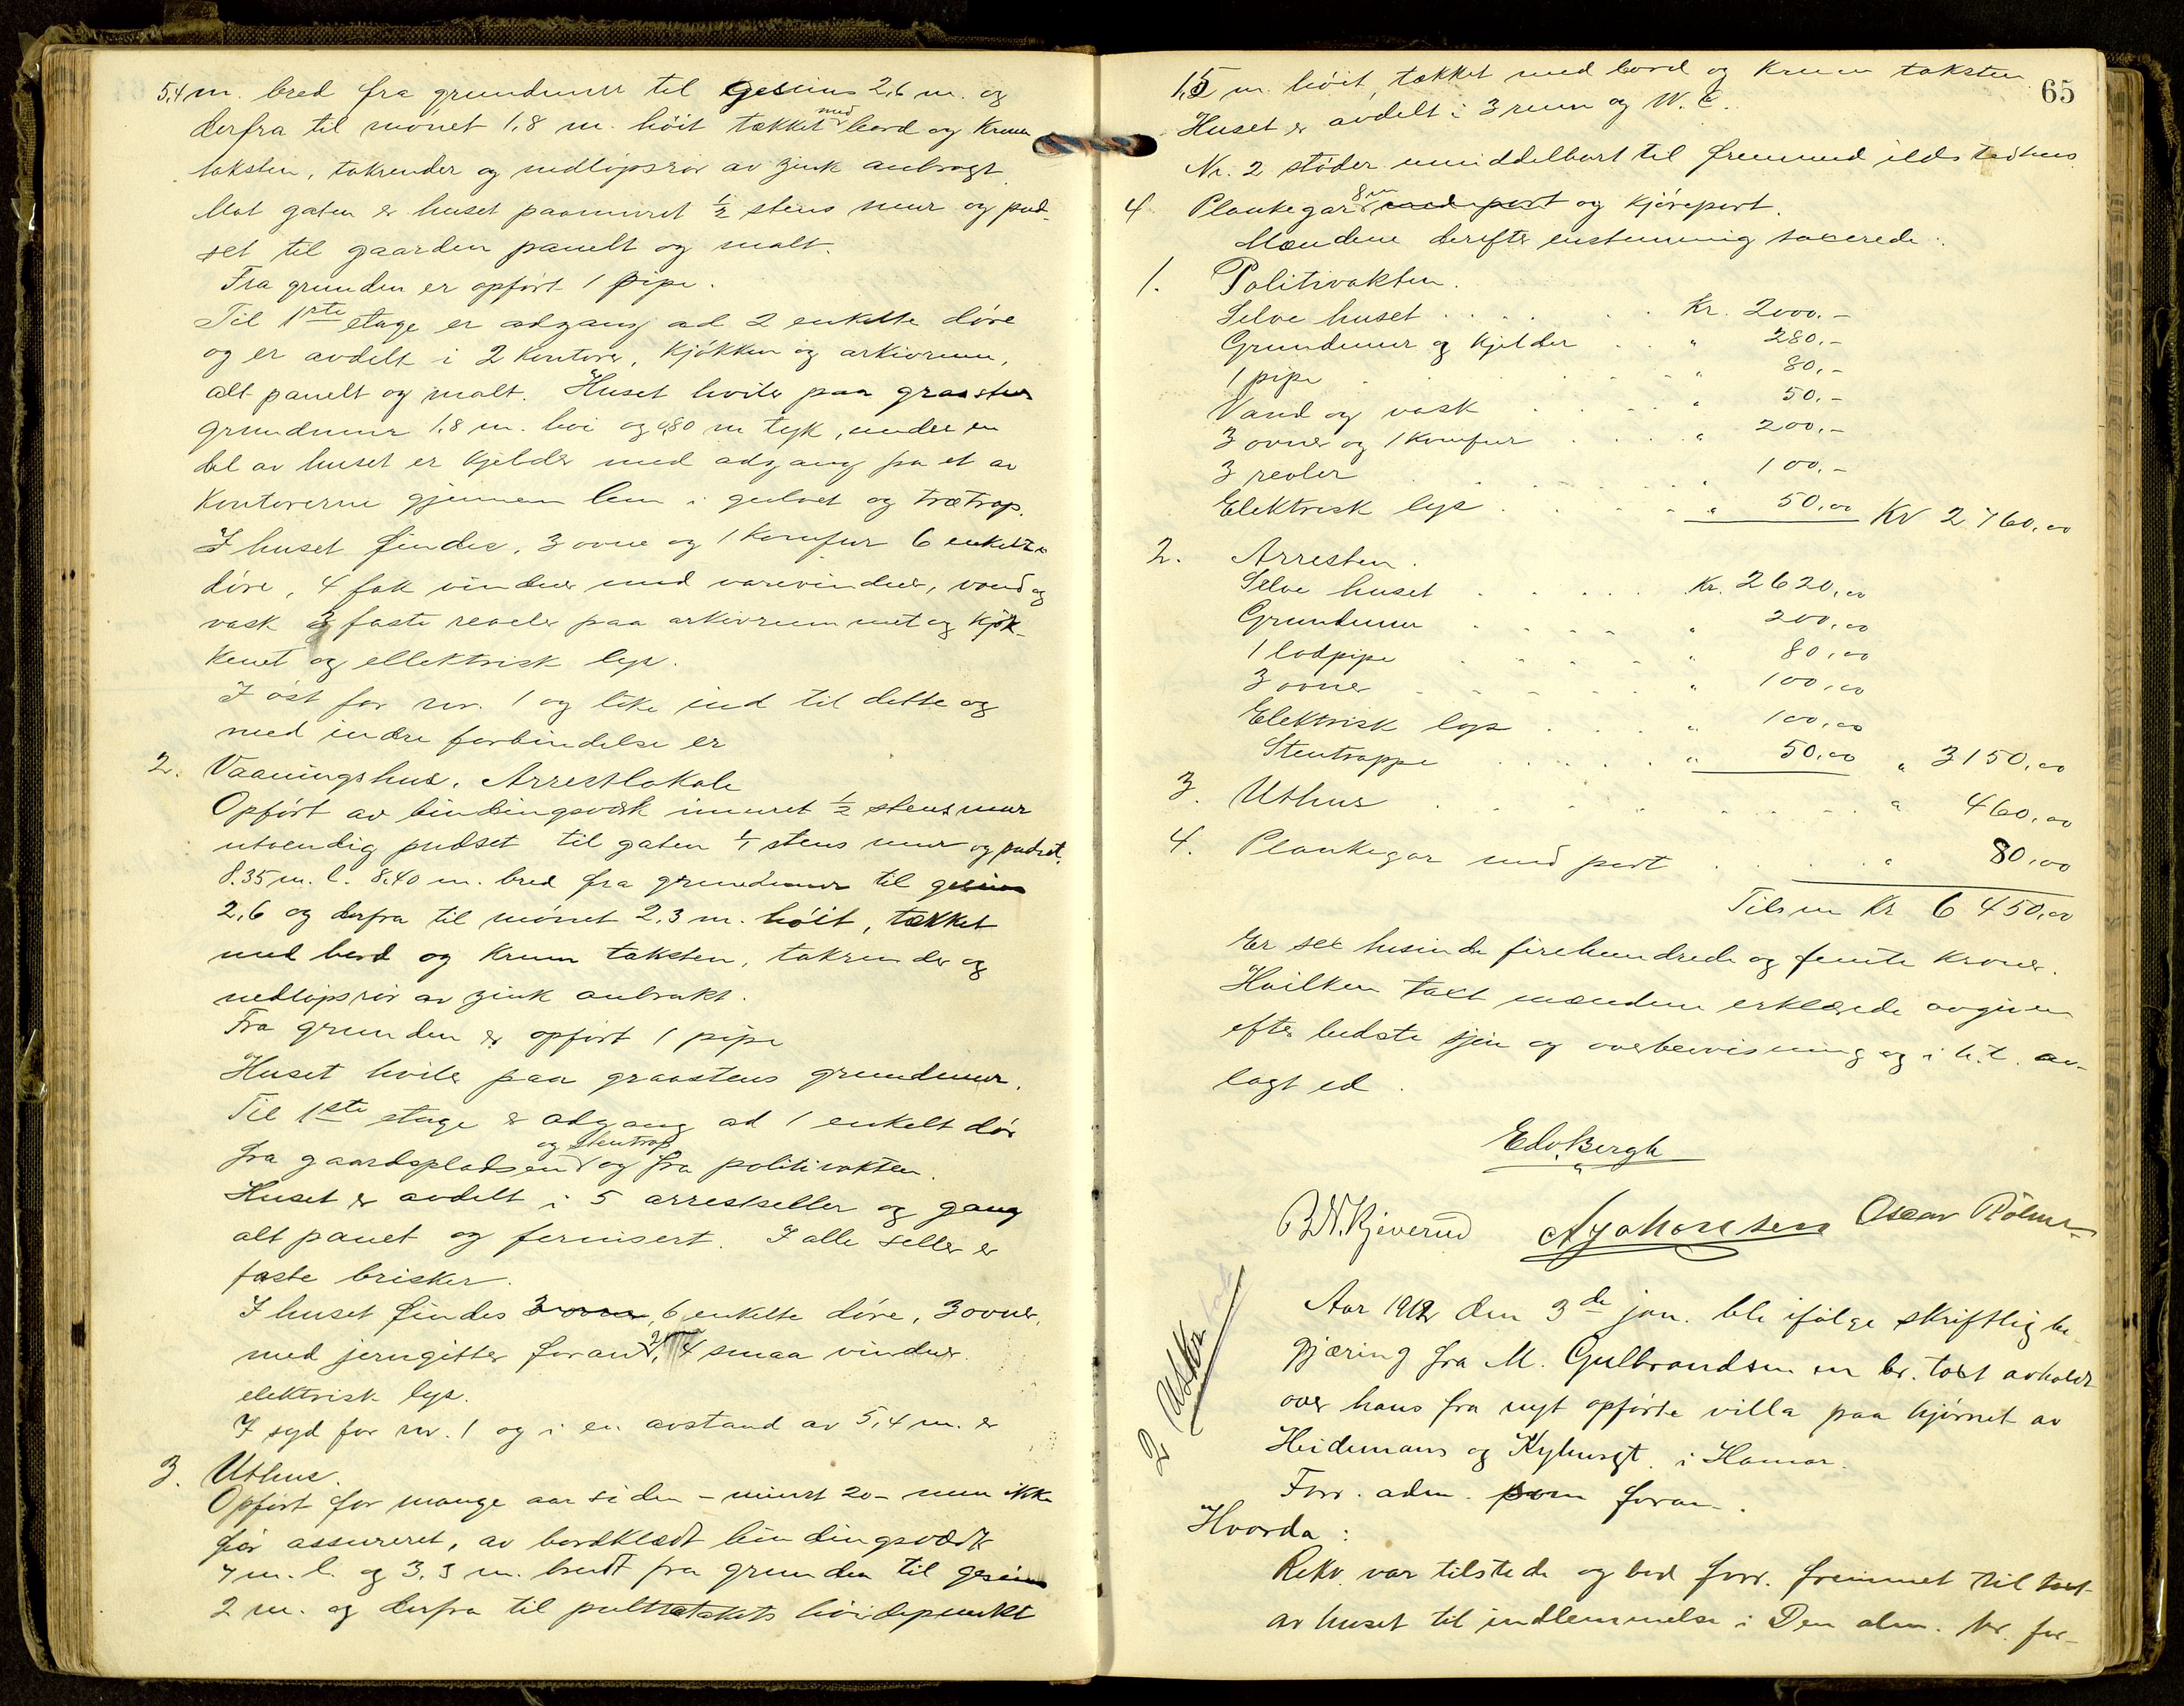 5,4 m. bred fra grundmur til gesims 2,6 m. og
derfra til mønet 1,8 m. höit tækket med bord og krum
taksten, takrender og nedløpsrör av zink anbragt.
Mot gaten er huset paamuret ½ stens mur og pud-
set til gaarden panelt og malt.
Fra grunden er opført 1 pipe.
Til 1ste etage er adgang ad 2 enkelte døre
og er avdelt i 2 kontorer, kjøkken og arkivrum,
alt panelt og malt. Huset hviler paa graasten
grundmur 1,8 m. høi og 0,80 m tyk, under en
del av huset er kjelder med adgang fra et av
kontorerne gjennem lem i gulvet og trætrap.
I huset findes, 3 ovne og 1 komfur 6 enkelte
döre, 4 fak vinduer med varevinduer, vand og
vask 3 faste reoler paa arkivrummet og kjøk-
kenet og ellektrisk lys.
I øst for nr. 1 og like ind til dette og
med indre forbindelse er
2. Vaaningshus. Arrestlokale
Opført av bindingsverk imuret ½ stens mur
utvendig pudset til gaten 1/1 stens mur og pudset.
8.35 m. l. 8,40 m. bred fra grundmur til gesims
2,6 og derfra til mønet 2,3 m. høit, tækket
med bord og krum taksten, takrender og
nedløpsrör av zink anbrakt.
Fra grunden er opført 1 pipe
Huset hviler paa graastens grundmur.
Til 1ste etage er adgang ad 1 enkelt dør
fra gaardspladsen og stentrap og fra politivakten.
Huset er avdelt i 5 arrestseller og gang
alt panelt og fernisert. I alle seller er
faste brisker.
I huset findes 3 ovner, 6 enkelte döre, 3 ovner,
med jerngitter foran 4 smaa vinduer.
elektrisk lys.
I syd for nr. 1 og i en avstand av 5,4 m. er
3. Uthus.
Opført for mange aar siden – minst 20 – men ikke
før assureret, av bordklædt bindingsverk
7 m. l. og 3,3 m. bredt fra grunden til gesims
2 m. og derfra til pulttakets höidepunkt
65
1,5 m. höit, tækket med bord og krum taksten
Huset er avdelt i 3 rum og W. C.
Nr. 2 støder umiddelbart til fremmed ildstedhus
4 Plankegar 8 m med port og kjøreport.
Mændene derefter enstemmig taxerede:
1. Politivakten.
Selve huset . . . . . Kr. 2000.-
Grundmur og kjelder . . " 280,-
1 pipe . . . . . " 80,-
Vand og vask . . . . " 50.-
3 ovner og 1 komfur . . . . " 200,-
3 reoler . . . . . " 100,-
Elektrisk lys . . . . " 50,00 Kr 2760,00
2. Arresten.
Selve huset . . . . . Kr. 2620,00
Grundmur . . . . " 200,00
1 lodpipe . . . . " 80,00
3 ovner . . . . . " 100,00
Elektrisk lys . . . . " 100,00
Stentrappe . . . . " 50,00 " 3150,00
3. Uthus . . . . . . . " 460,00
4. Plankegar med port . . . . " 80,00
Tilsm Kr 6 450,00
Er sex tusinde firehundrede og femti kroner.
Hvilken taxt mændene erklærede avgiven
efter bedste skjøn og overbevisning og i h. t. av-
lagt ed.
Edv. Bergh
A Johansen Oscar
2 Utskr
Aar 1912 den 3de jan. ble ifølge skriftlig be-
gjæring fra M. Gulbrandsen en br. taxt avholdt
over hans fra nyt opførte villa paa hjørnet av
Heidemans og Kyhusgt. i Hamar.
Forr. adm. som foran.
Hvorda:
Rekv. var tilstede og bad forr. fremmet til taxt
av huset til indlemmelse i Den alm. br. for-